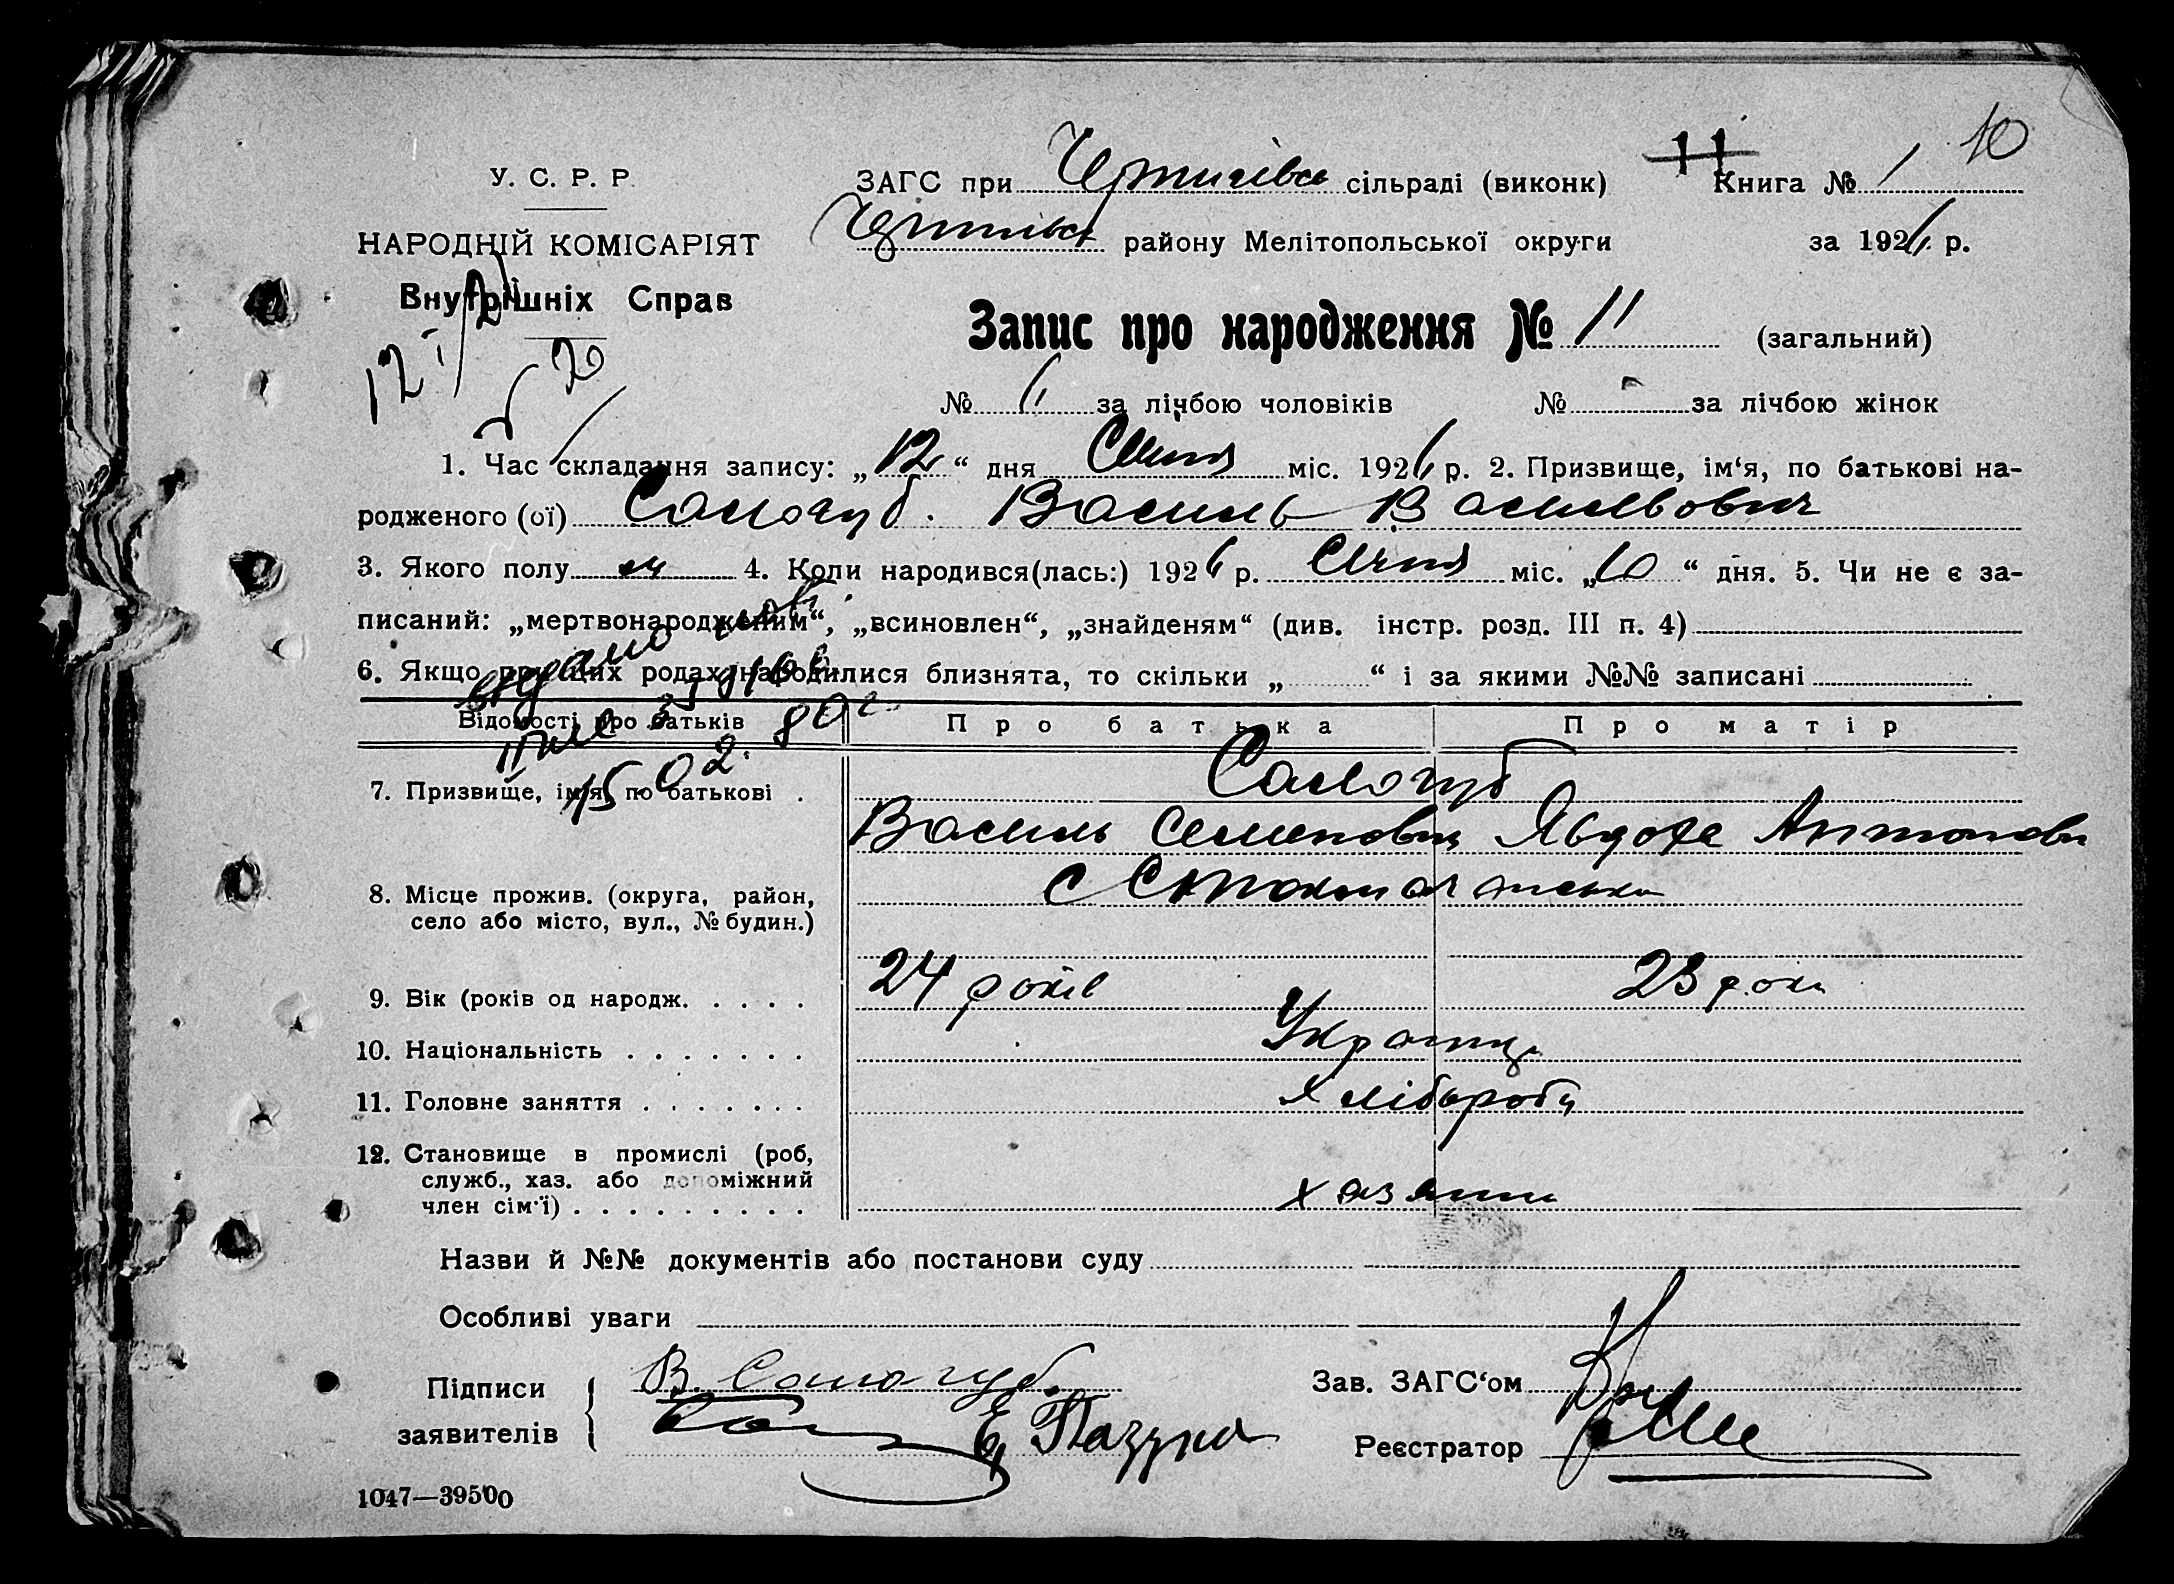 11 10
У. С. Р. Р.
ЗАГС при Чернигівск сільраді (виконк) Книга № 1
НАРОДНІЙ КОМІСАРІЯТ
району Мелітопольської округи за 1926 р.
Внутрішніх Справ
Запис про народження № 11 (загальний)
№ 6 за лічбою чоловіків № - за лічбою жінок
1. Час складання запису: „12“ дня Січня міс. 1926 р. 2. Призвище, ім‘я, по батькові на-
родженого (ої) Самогуб Василь Васильович
3. Якого полу м 4. Коли народився(лась:) 1926 р. Січня міс. „10“ дня. 5. Чи не є за-
писаний: „мертвонародженим“, „всиновлен“, „знайденям“ (див. інстр. розд. III п. 4)
6. Якщо при цих родах народилися близнята, то скільки „ “ і за якими №№ записані
Відомості про батьків Про батька Про матір
видано
15 02. 80 г.
7. Призвище, ім‘я, по батькові . Самогуб
Василь Семенович Явдоха Антонови
8. Місце прожив. (округа, район, с
село або місто, вул., № будин.)
9. Вік (років од народж. . . . . 24 років 23 роки
10. Національність . . . . . . . Українці
11. Головне заняття . . . . . . . хлібороби
12. Становище в промислі (роб,
служб., хаз. або допоміжний
член сім‘ї) . . . . . . . . . хазяини
Назви й №№ документів або постанови суду
Особливі уваги
Підписи В. Самогуб Зав. ЗАГС‘ом
заявителів Е Пазуха Реєстратор
1047—39500